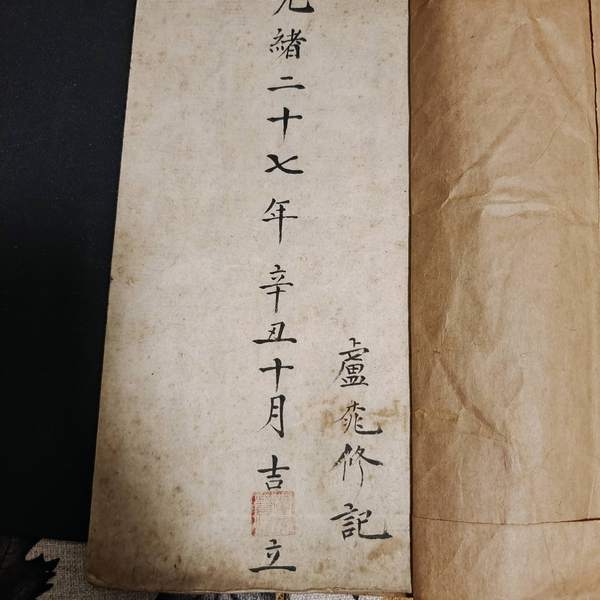 盧修記
光緒二十七年辛丑十月吉立